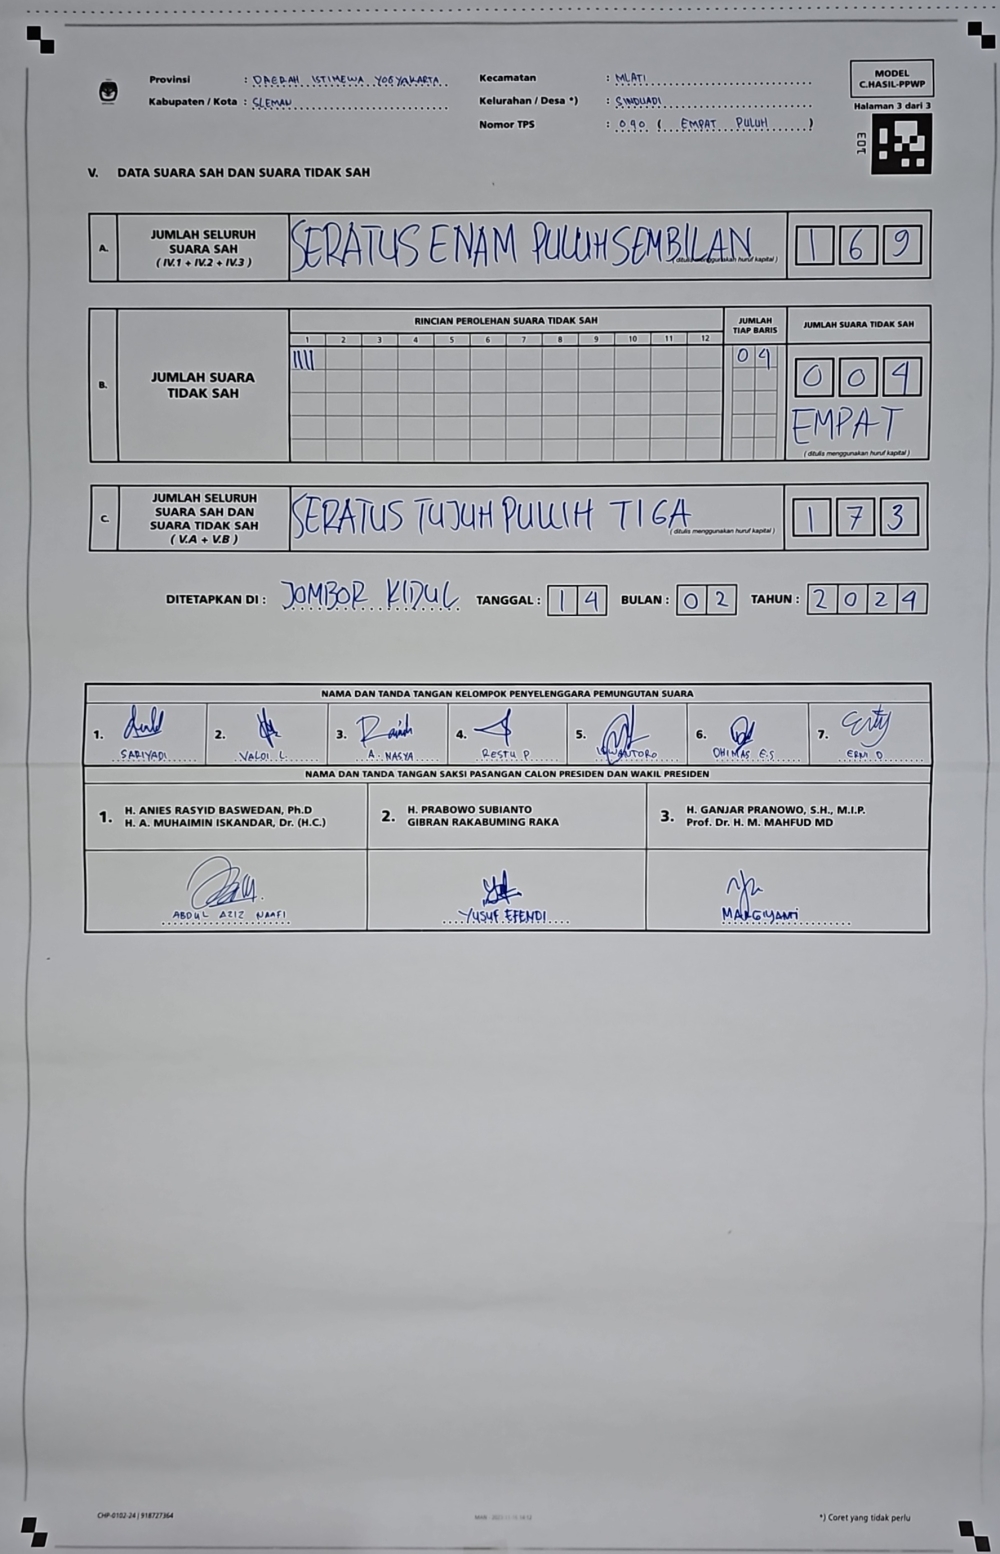 Provinsi : DAERAH ISTIMEWA YOGYAKARTA
Kabupaten / Kota : SLEMAN
Kecamatan : MLATI
Kelurahan / Desa *) : SINDUADI
Nomor TPS : 040 ( EMPAT PULUH )
MODEL
C.HASIL-PPWP
Halaman 3 dari 3
V. DATA SUARA SAH DAN SUARA TIDAK SAH
A. JUMLAH SELURUH
SUARA SAH
( IV.1 + IV.2 + IV.3 )
SERATUS ENAM PULUH SEMBILAN
( ditulis menggunakan huruf kapital )
1 6 9
B. JUMLAH SUARA
TIDAK SAH
RINCIAN PEROLEHAN SUARA TIDAK SAH
1 2 3 4 5 6 7 8 9 10 11 12
JUMLAH
TIAP BARIS
JUMLAH SUARA TIDAK SAH
IIII
0 4
0 0 4
EMPAT
( ditulis menggunakan huruf kapital )
C. JUMLAH SELURUH
SUARA SAH DAN
SUARA TIDAK SAH
( V.A + V.B )
SERATUS TUJUH PULUH TIGA
( ditulis menggunakan huruf kapital )
1 7 3
DITETAPKAN DI : JOMBOR KIDUL TANGGAL : 1 4 BULAN : 0 2 TAHUN : 2 0 2 4
NAMA DAN TANDA TANGAN KELOMPOK PENYELENGGARA PEMUNGUTAN SUARA
1. 2. 3. 4. 5. 6. 7.
SARIYADI VALDI L. A. NASYA RESTU P DHIMAS E.S ERNI D
NAMA DAN TANDA TANGAN SAKSI PASANGAN CALON PRESIDEN DAN WAKIL PRESIDEN
1. H. ANIES RASYID BASWEDAN, Ph.D
H. A. MUHAIMIN ISKANDAR, Dr. (H.C.)
2. H. PRABOWO SUBIANTO
GIBRAN RAKABUMING RAKA
3. H. GANJAR PRANOWO, S.H., M.I.P.
Prof. Dr. H. M. MAHFUD MD
ABDUL AZIZ NAAFI
YUSUF EFENDI
MARGIYANTI
CHP-0102-24 | 918727364
*) Coret yang tidak perlu